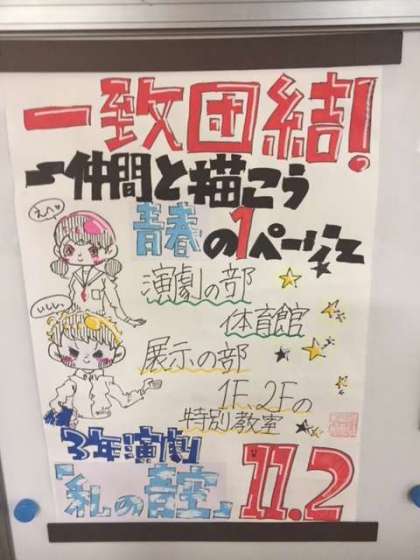 一致団結!
~仲間と描こう
青春の1ページを~
えへ
演劇の部
体育館
いしし
展示の部
1F、2Fの
特別教室
3年演劇
「私の青空」
11.2